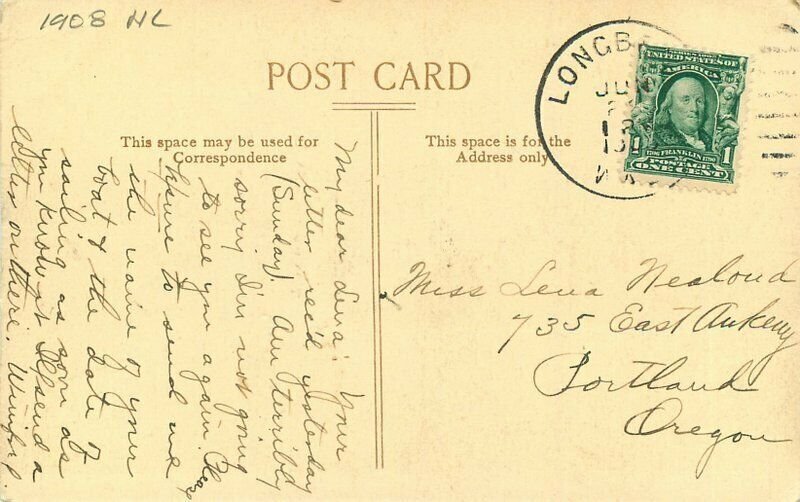 1908 HL
POST CARD
This space may be used for
Correspondence
This space is for the
Address only
LONGB
JU
UNITED STATES OF
AMERICA
FRANKLIN
POSTAGE
ONE CENT
1
My dear Lena: Your
letter rec'd yesterday
(Sunday). Am terribly
sorry I'm not going
to see you again. Please
figure to send me
the name of your
boat & the date of
sailing as soon as
you know it. I'll send a
letter on there. Winifred
Miss Lena
735 East Ankeny
Portland
Oregon